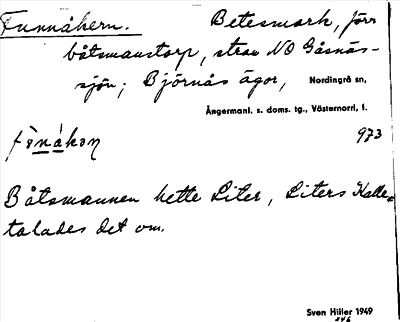 Funnåkern. Betesmark, förr
båtsmanstorp, strax NO Gåsnäs-
sjön; Björnås ägor, Nordingrå sn,
Ångermanl. s. doms. tg., Västernorrl. l.
973
Båtsmannen hette Liter, Liters Kalle
talades det om.
Sven Hiller 1949